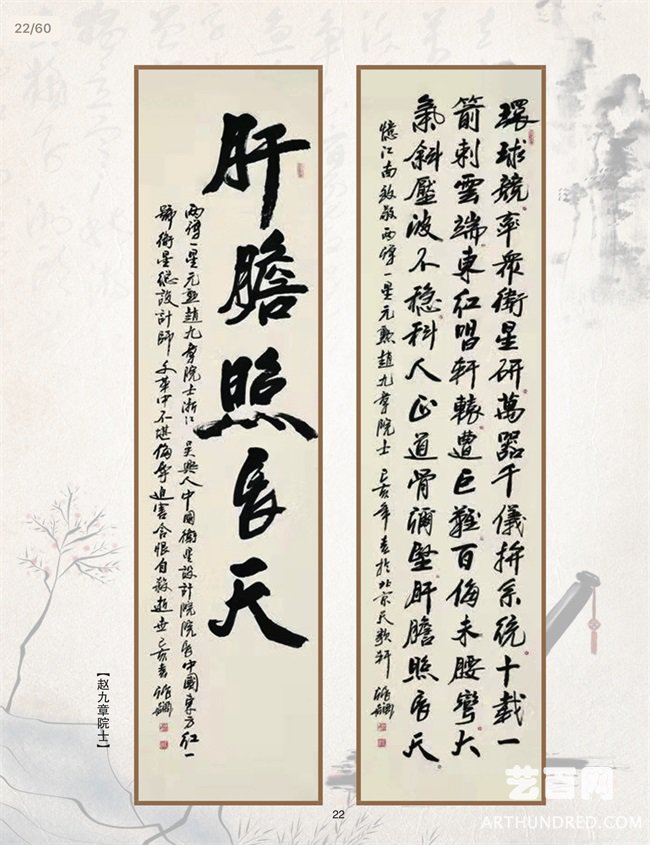 22/60
環球競率衆衛星研萬器千儀拚系統十載一
箭刺雲端東紅唱軒轅遭巨難百侮未腰彎大
氣斜壓波不穩科人正道骨彌堅肝膽照長天
憶江南致敬兩彈一星元勳趙九章院士 己亥年春於北京天歌軒
肝膽照長天
兩彈一星元勳趙九章院士浙江吳興人中國衛星設計院院長中國東方紅一
號衛星總設計師文革中不堪侮辱迫害含恨自殺逝世己亥春
【赵九章院士】
22
艺百网
ARTHUNDRED.COM